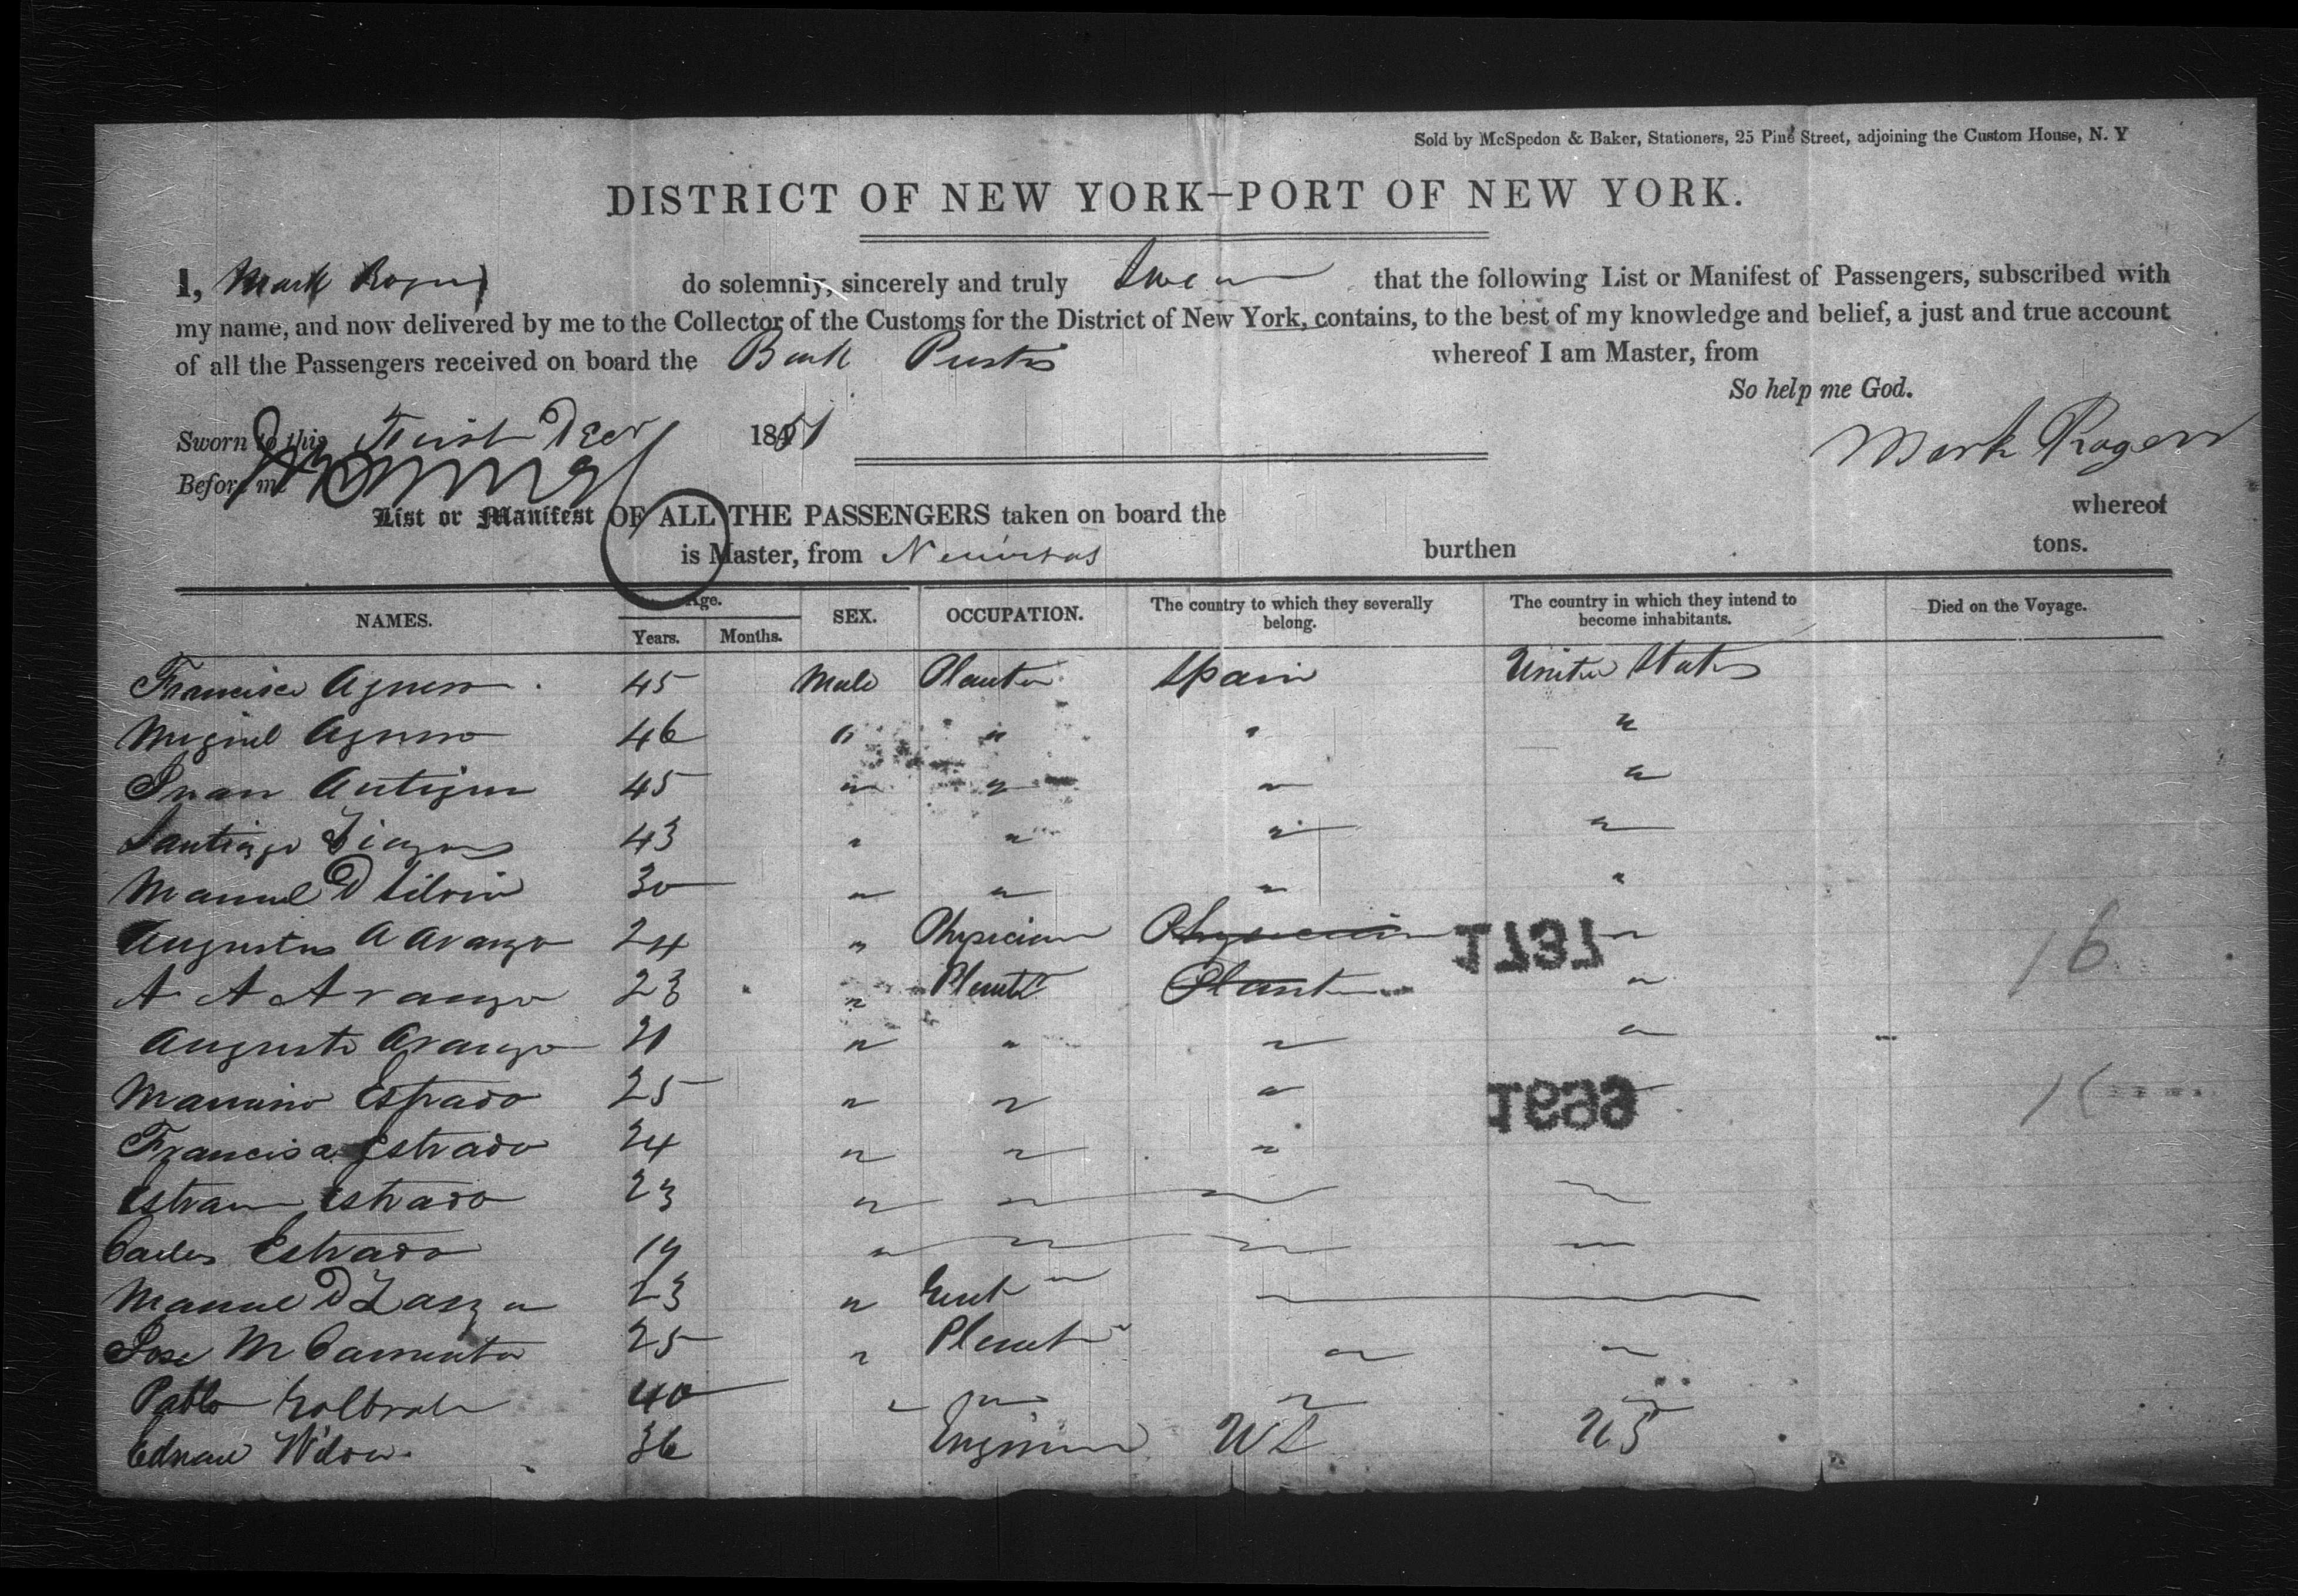 Sold by McSpedon & Baker, Stationers, 25 Pine Street, adjoining the Custom House, N. Y
DISTRICT OF NEW YORK—PORT OF NEW YORK.
I, Mark Rogers do solemnly, sincerely and truly Swear that the following List or Manifest of Passengers, subscribed with
my name, and now delivered by me to the Collector of the Customs for the District of New York, contains, to the best of my knowledge and belief, a just and true account
of all the Passengers received on board the Bark whereof I am Master, from
So help me God.
Sworn to this First Decr 1851
Mark Rogers
Before me
List or Manifest OF ALL THE PASSENGERS taken on board the whereof
is Master, from Neuvitas burthen tons.
NAMES. Age. Years. Months. SEX. OCCUPATION. The country to which they severally belong. The country in which they intend to become inhabitants. Died on the Voyage.
Francisco Aguero 45 Male Planter Spain United States
Miguel Aguero 46 " " " "
Juan 45 " " " "
Santiago 43 " " " "
Manuel D 30 " " " "
Augustus A Arango 24 " Physician Physician "
A A Arango 23 " Plantr Plantr "
Augusto Arango 21 " " " "
Mariano Estrado 25 " " "
Francisa Estrado 24 " " "
Estevan Estrado 23 " " " "
Carlos Estrado 19 " " " "
Manuel D 23 " "
Jose M 25 " Plantr " "
Pablo 40 " " " "
Edward Wilson 36 Engineer US US
1737
1699
16